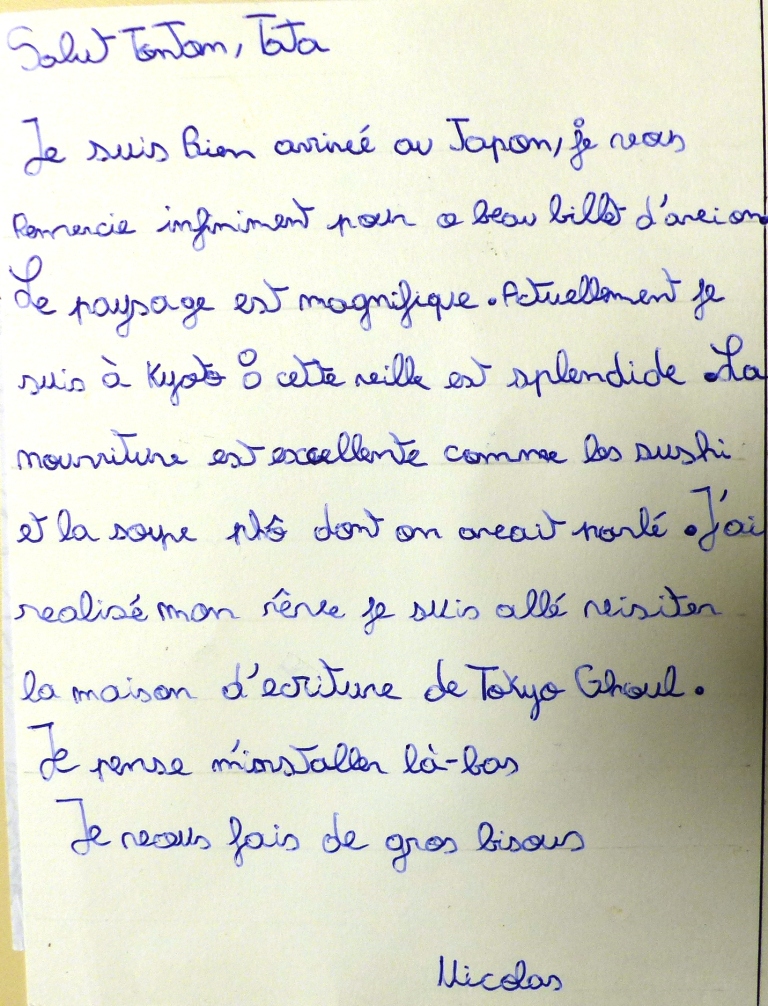 Salut Tonton, Tata
Je suis bien arrivé au Japon, je vous
Remercie infiniment pour ce beau billet d'avion.
Le paysage est magnifique. Actuellement je
suis à Kyoto : cette ville est splendide. La
nourriture est excellente comme les sushi
et la soupe phô dont on avait parlé. J'ai
realisé mon rêve je suis allé visiter
la maison d'ecriture de Tokyo Ghoul.
Je pense m'installer là-bas
Je vous fais de gros bisous
Nicolas